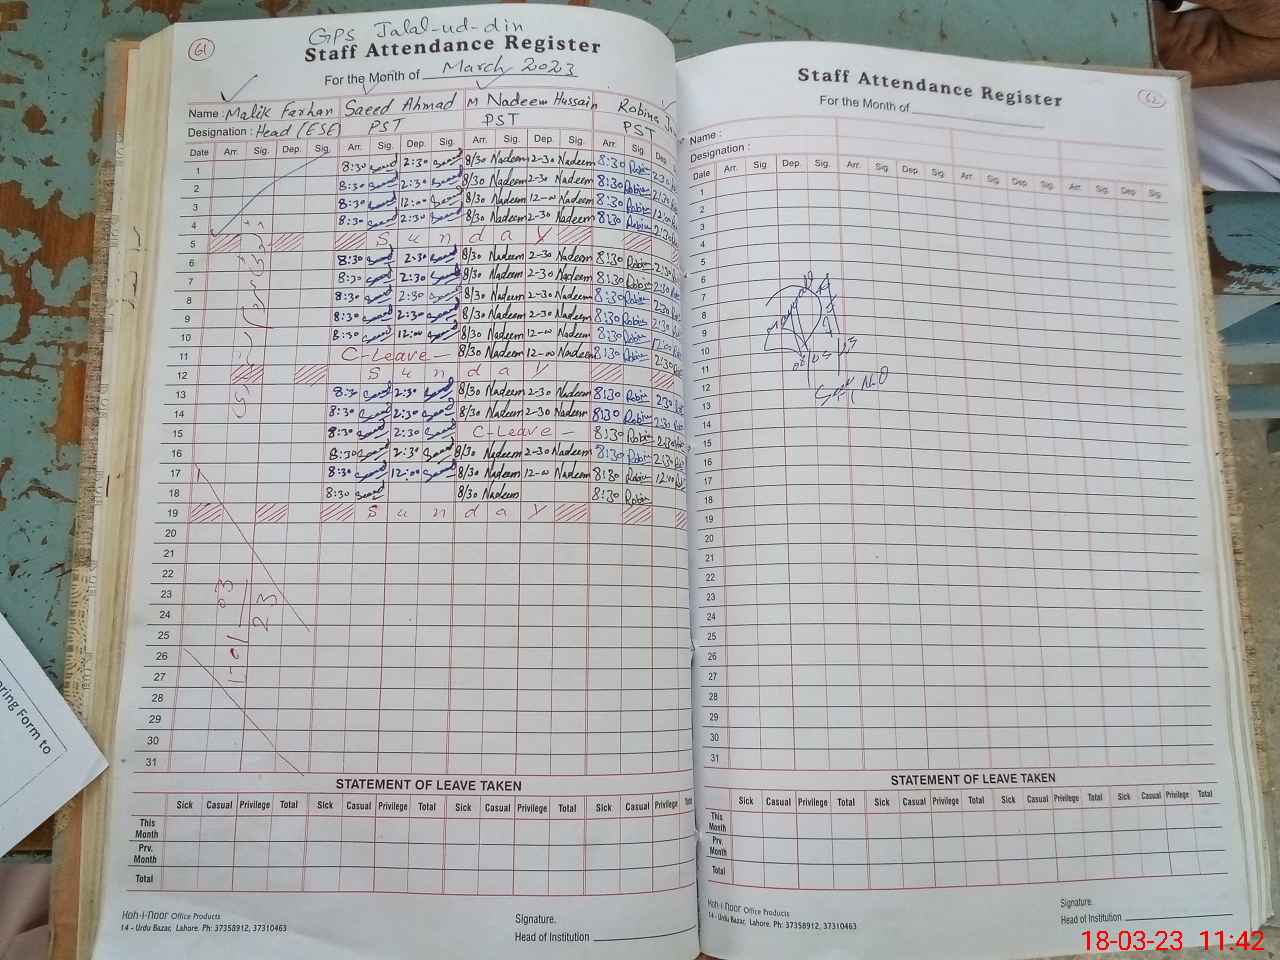 61
GPS Jalal-ud-din
Staff Attendance Register
For the Month of March 2023
Name : Malik Farhan Saeed Ahmad M Nadeem Hussain Robina
Designation : Head (ESE) PST PST PST
Date Arr. Sig. Dep. Sig. Arr. Sig. Dep. Sig. Arr. Sig. Dep. Sig. Arr. Sig. Dep.
1 8:30 Saeed 2:30 Saeed 8/30 Nadeem 2-30 Nadeem 8:30 Robin 2:30
2 8:30 Saeed 2:30 Saeed 8/30 Nadeem 2-30 Nadeem 8:30 Robin 2:30
3 8:30 Saeed 12:00 Saeed 8/30 Nadeem 12-00 Nadeem 8:30 Robin 12:00
4 8:30 Saeed 2:30 Saeed 8/30 Nadeem 2-30 Nadeem 8:30 Robin 2:30
5 S u n d a y
6 8:30 Saeed 2:30 Saeed 8/30 Nadeem 2-30 Nadeem 8:30 Robin 2:30
7 8:30 Saeed 2:30 Saeed 8/30 Nadeem 2-30 Nadeem 8:30 Robin 2:30
8 8:30 Saeed 2:30 Saeed 8/30 Nadeem 2-30 Nadeem 8:30 Robin 2:30
9 8:30 Saeed 2:30 Saeed 8/30 Nadeem 2-30 Nadeem 8:30 Robin 2:30
10 8:30 Saeed 12:00 Saeed 8/30 Nadeem 12-00 Nadeem 8:30 Robin 12:00
11 C-Leave - 8/30 Nadeem 12-00 Nadeem 8:30 Robin 2:30
12 S u n d a y
13 8:30 Saeed 2:30 Saeed 8/30 Nadeem 2-30 Nadeem 8:30 Robin 2:30
14 8:30 Saeed 2:30 Saeed 8/30 Nadeem 2-30 Nadeem 8:30 Robin 2:30
15 8:30 Saeed 2:30 Saeed C-Leave - 8:30 Robin 2:30
16 8:30 Saeed 2:30 Saeed 8/30 Nadeem 2-30 Nadeem 8:30 Robin 2:30
17 8:30 Saeed 12:00 Saeed 8/30 Nadeem 12-00 Nadeem 8:30 Robin 12:00
18 8:30 Saeed 8/30 Nadeem 8:30 Robin
19 S u n d a y
20
21
22
23
24
25
26
27
28
29
30
31
STATEMENT OF LEAVE TAKEN
Sick Casual Privilege Total Sick Casual Privilege Total Sick Casual Privilege Total Sick Casual Privilege
This Month
Prv. Month
Total
Koh-i-Noor Office Products
14 - Urdu Bazar, Lahore. Ph: 37358912, 37310463
Signature.
Head of Institution
Staff Attendance Register
62
For the Month of
Name :
Designation :
Date Arr. Sig. Dep. Sig. Arr. Sig. Dep. Sig. Arr. Sig. Dep. Sig. Arr. Sig. Dep. Sig.
1
2
3
4
5
6
7
8
9
10
11
12
13
14
15
16
17
18
19
20
21
22
23
24
25
26
27
28
29
30
31
STATEMENT OF LEAVE TAKEN
Sick Casual Privilege Total Sick Casual Privilege Total Sick Casual Privilege Total Sick Casual Privilege Total
This Month
Prv. Month
Total
Koh-i-Noor Office Products
14 - Urdu Bazar, Lahore. Ph: 37358912, 37310463
Signature.
Head of Institution
oring Form to
18-03-23 11:42